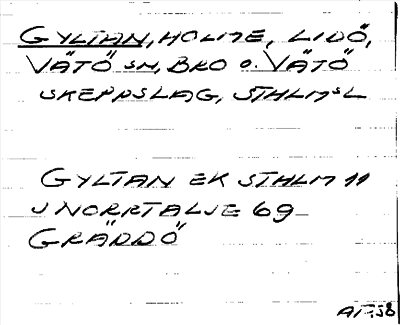 GYLTAN, HOLME, LIDÖ,
VÄTÖ SN, BRO o. VÄTÖ
SKEPPSLAG, STHLMSL
GYLTAN EK STHLM 11
J NORRTALJE 69
GRÄDDÖ